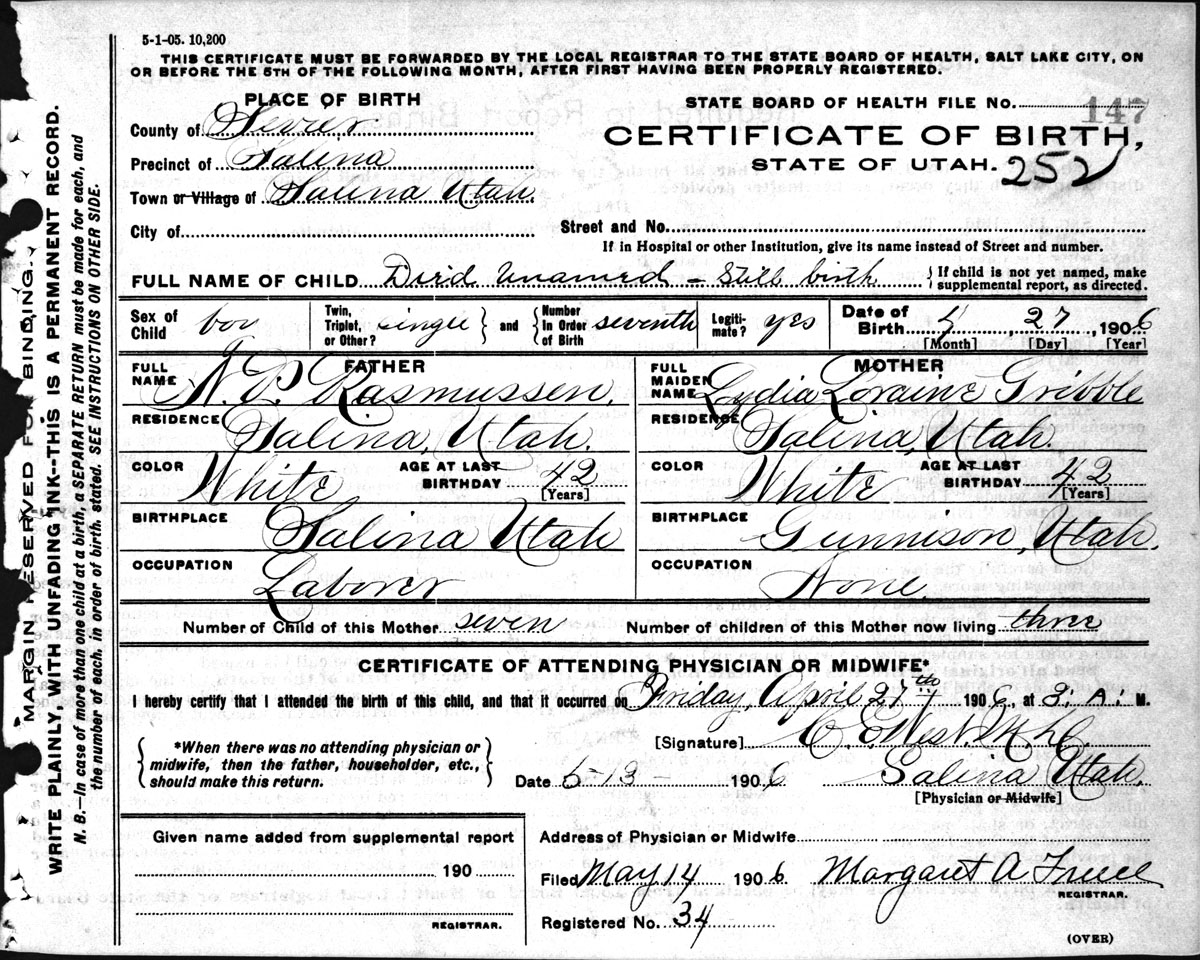 5-1-05. 10,200
THIS CERTIFICATE MUST BE FORWARDED BY THE LOCAL REGISTRAR TO THE STATE BOARD OF HEALTH, SALT LAKE CITY, ON
OR BEFORE THE 5TH OF THE FOLLOWING MONTH, AFTER FIRST HAVING BEEN PROPERLY REGISTERED.
PLACE OF BIRTH
County of Sevier
Precinct of Salina
Town or Village of Salina Utah.
City of
STATE BOARD OF HEALTH FILE No. 147
CERTIFICATE OF BIRTH,
STATE OF UTAH. 252
Street and No.
If in Hospital or other Institution, give its name instead of Street and number.
FULL NAME OF CHILD Died Unamed - Still birth { If child is not yet named, make
supplemental report, as directed.
Sex of Child boy
Twin, Triplet, or Other? single } and { Number In Order of Birth seventh
Legitimate? yes
Date of Birth 4, 27, 1906
[Month] [Day] [Year]
FATHER
FULL NAME N. P. Rasmussen.
RESIDENCE Salina, Utah.
COLOR White AGE AT LAST BIRTHDAY 42
[Years]
BIRTHPLACE Salina Utah
OCCUPATION Laborer
MOTHER
FULL MAIDEN NAME Lydia Loraine Gribble
RESIDENCE Salina, Utah.
COLOR White AGE AT LAST BIRTHDAY 42
[Years]
BIRTHPLACE Gunnison, Utah.
OCCUPATION None.
Number of Child of this Mother seven Number of children of this Mother now living three
CERTIFICATE OF ATTENDING PHYSICIAN OR MIDWIFE*
I hereby certify that I attended the birth of this child, and that it occurred on Friday, April 27th 1906, at 3: A: M.
{ *When there was no attending physician or
midwife, then the father, householder, etc.,
should make this return. }
[Signature] C. E. West. M. D.
Date 5-13- 1906 Salina Utah.
[Physician or Midwife]
Given name added from supplemental report
190
REGISTRAR.
Address of Physician or Midwife
Filed May 14 1906 Margaret A
REGISTRAR.
Registered No. 34
(OVER)
MARGIN RESERVED FOR BINDING.
WRITE PLAINLY WITH UNFADING INK--THIS IS A PERMANENT RECORD.
N. B.—In case of more than one child at a birth, a SEPARATE RETURN must be made for each, and
the number of each, in order of birth, stated. SEE INSTRUCTIONS ON OTHER SIDE.